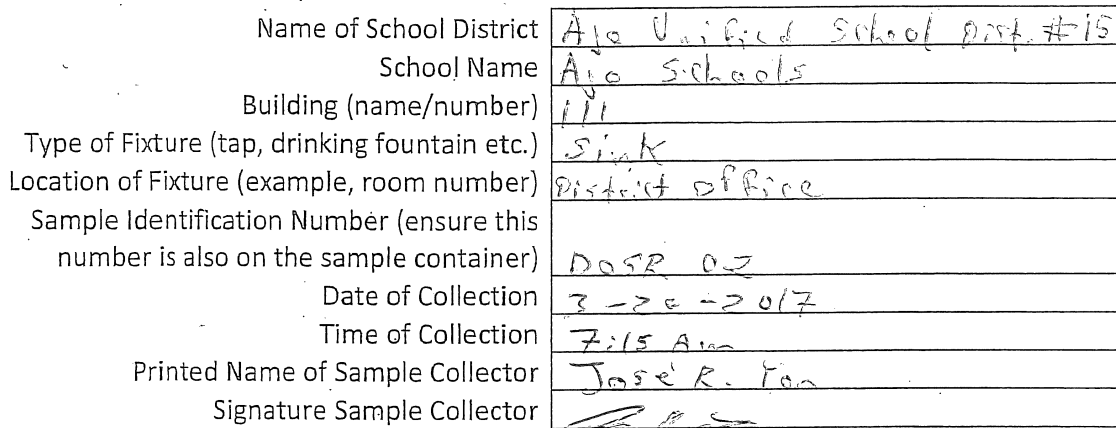 Name of School District Ajo Unified School Dist. #15
School Name Ajo Schools
Building (name/number) 111
Type of Fixture (tap, drinking fountain etc.) Sink
Location of Fixture (example, room number) District office
Sample Identification Number (ensure this
number is also on the sample container) DOSR 02
Date of Collection 3-20-2017
Time of Collection 7:15 Am
Printed Name of Sample Collector José R.
Signature Sample Collector